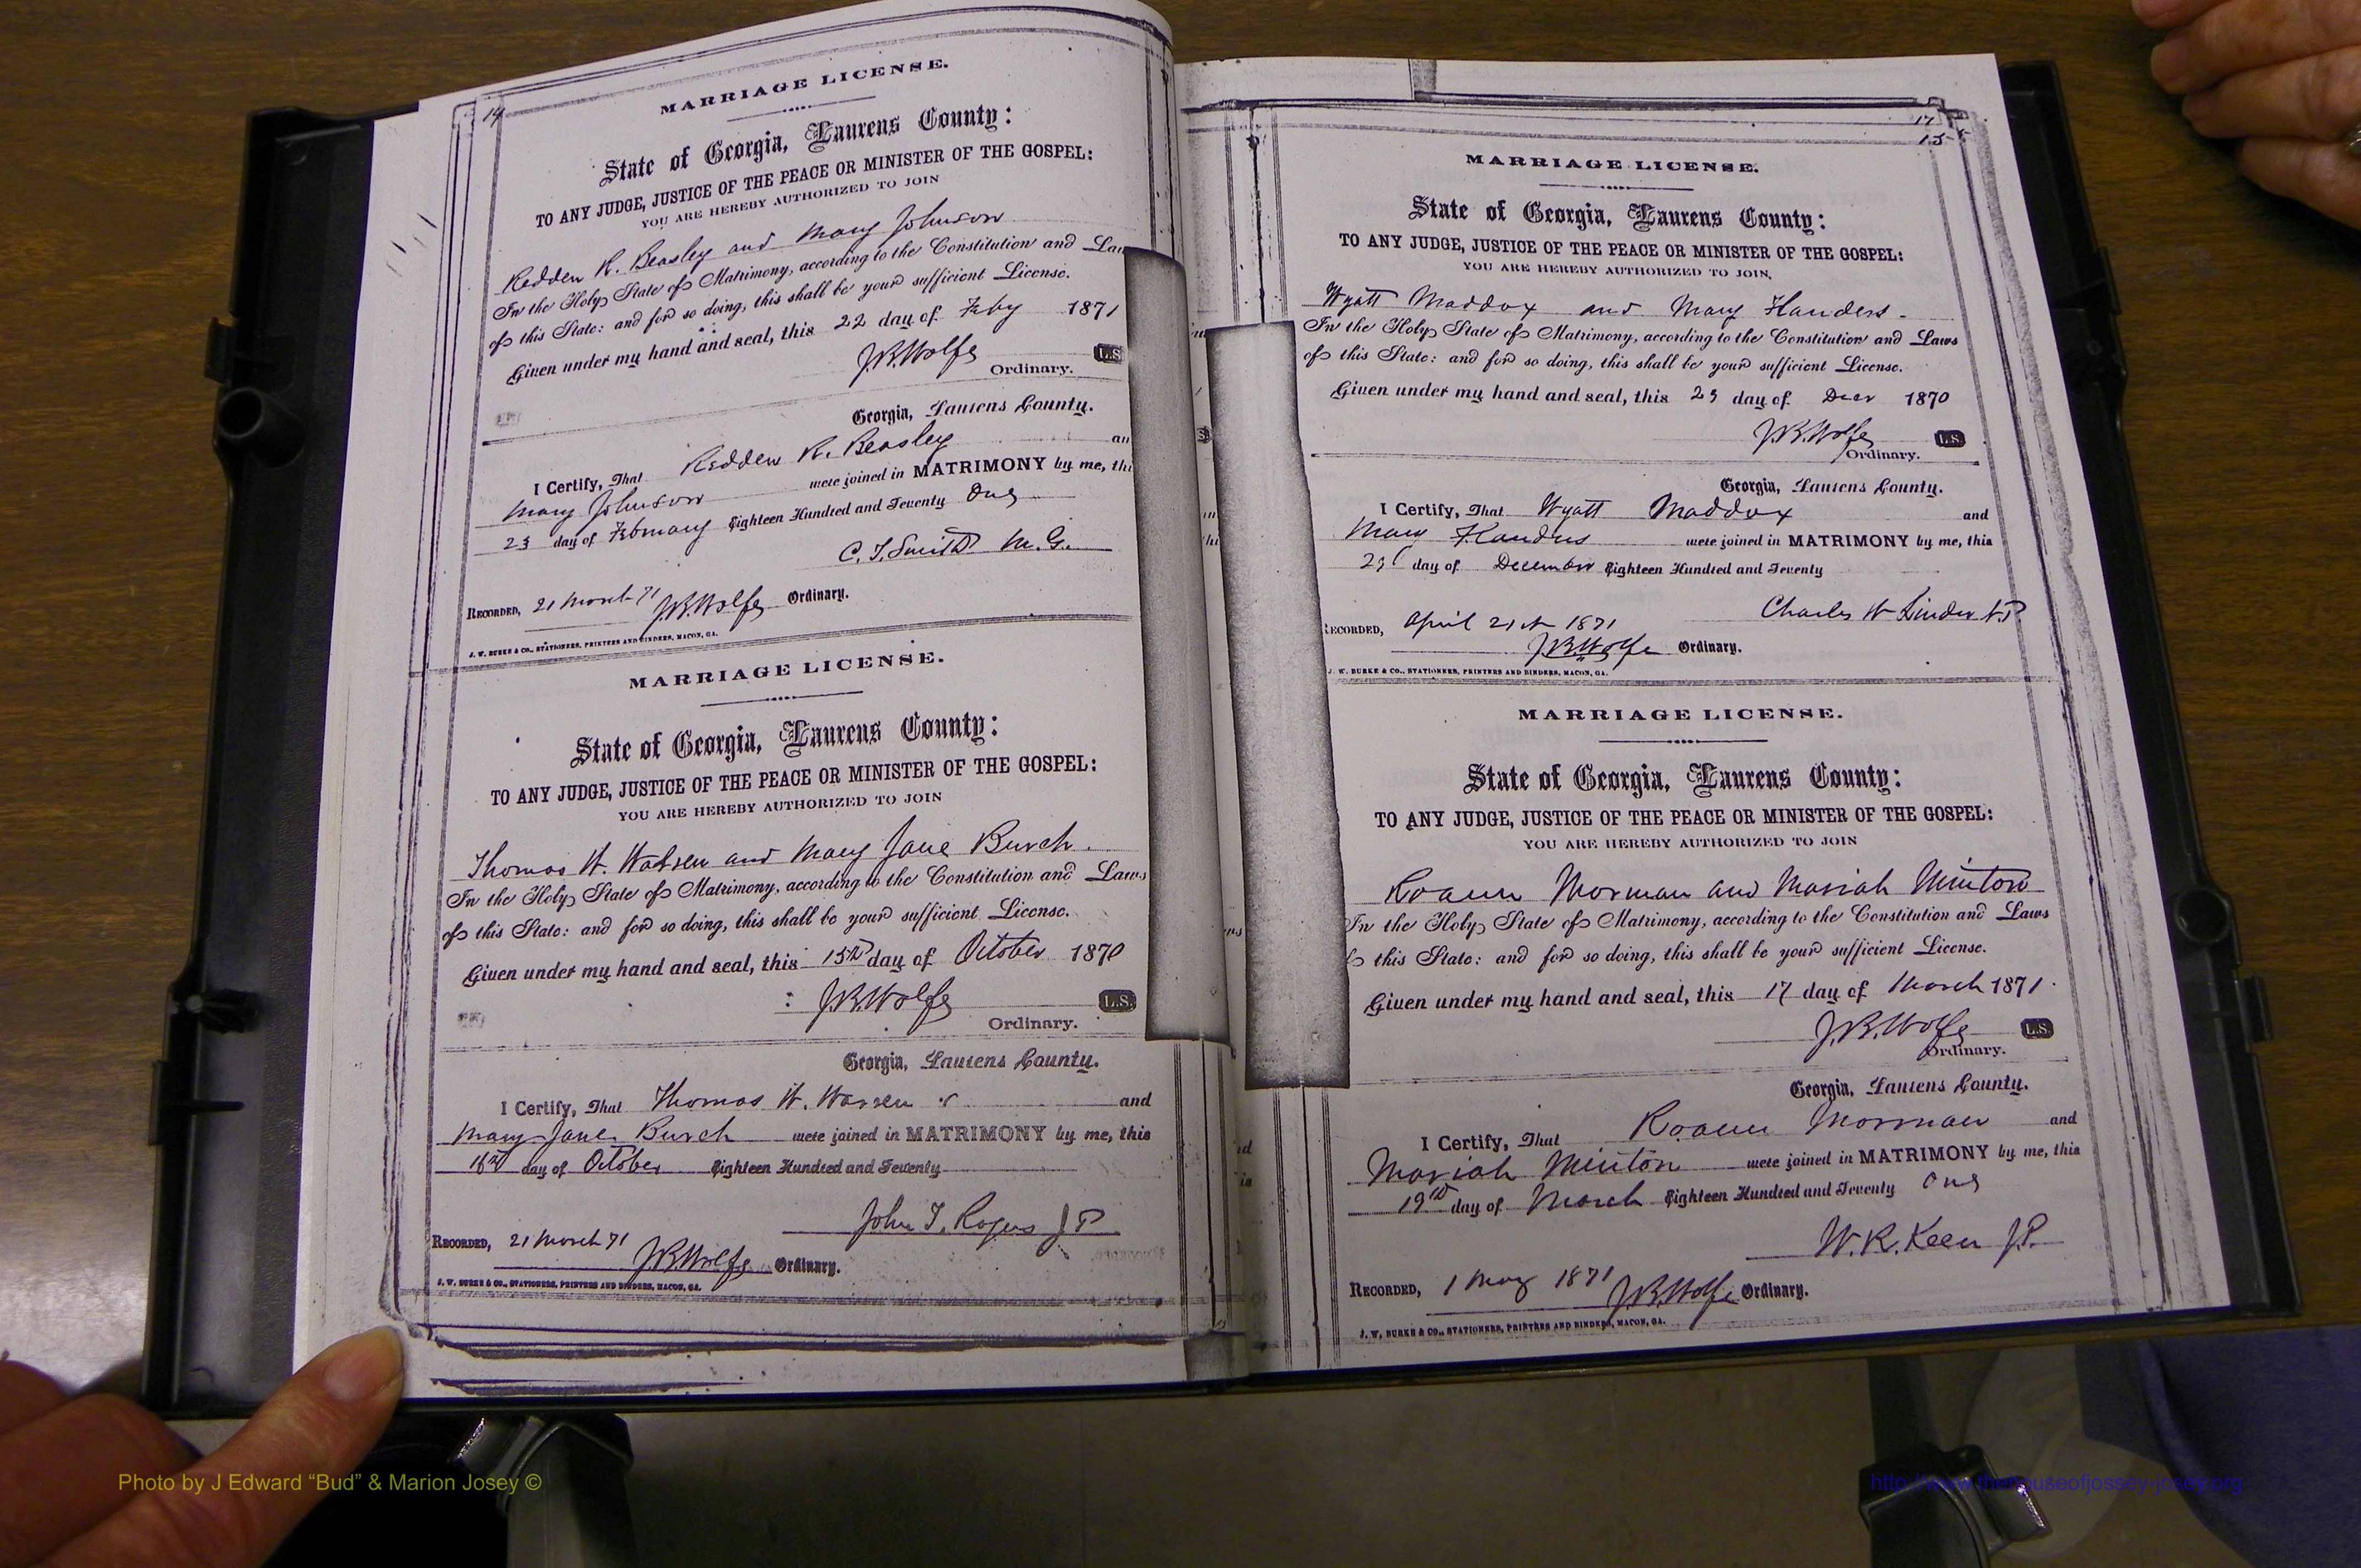 14
MARRIAGE LICENSE.
State of Georgia, Laurens County:
TO ANY JUDGE, JUSTICE OF THE PEACE OR MINISTER OF THE GOSPEL:
YOU ARE HEREBY AUTHORIZED TO JOIN
Redden R. Beasley and Mary Johnson
In the Holy State of Matrimony, according to the Constitution and Law
of this State: and for so doing, this shall be your sufficient License.
Given under my hand and seal, this 22 day of Feby 1871
J.B. Wolfe L.S.
Ordinary.
Georgia, Laurens County.
I Certify, That Redden R. Beasley an
Mary Johnson were joined in MATRIMONY by me, thi
23 day of February Eighteen Hundred and Seventy One
C. T. Smith M.G.
RECORDED, 21 March 71 J.B. Wolfe Ordinary.
J. W. BURKE & CO., STATIONERS, PRINTERS AND BINDERS, MACON, GA.
MARRIAGE LICENSE.
State of Georgia, Laurens County:
TO ANY JUDGE, JUSTICE OF THE PEACE OR MINISTER OF THE GOSPEL:
YOU ARE HEREBY AUTHORIZED TO JOIN
Thomas W. and Mary Jane Burch.
In the Holy State of Matrimony, according to the Constitution and Laws
of this State: and for so doing, this shall be your sufficient License.
Given under my hand and seal, this 15th day of October 1870
J.B. Wolfe L.S.
Ordinary.
Georgia, Laurens County.
I Certify, That Thomas W. and
Mary Jane Burch were joined in MATRIMONY by me, this
16th day of October Eighteen Hundred and Seventy
John T. Rogers J P
RECORDED, 21 March 71 J.B. Wolfe Ordinary.
J. W. BURKE & CO., STATIONERS, PRINTERS AND BINDERS, MACON, GA.
17
15
MARRIAGE LICENSE.
State of Georgia, Laurens County:
TO ANY JUDGE, JUSTICE OF THE PEACE OR MINISTER OF THE GOSPEL:
YOU ARE HEREBY AUTHORIZED TO JOIN,
Wyatt Maddox and Mary Flanders.
In the Holy State of Matrimony, according to the Constitution and Laws
of this State: and for so doing, this shall be your sufficient License.
Given under my hand and seal, this day of Decr 1870
J.B. Wolfe L.S.
Ordinary.
Georgia, Laurens County.
I Certify, That Wyatt Maddox and
Mary Flanders were joined in MATRIMONY by me, this
day of December Eighteen Hundred and Seventy
Charles W Linder
RECORDED, April 21st 1871
J.B. Wolfe Ordinary.
J. W. BURKE & CO., STATIONERS, PRINTERS AND BINDERS, MACON, GA.
MARRIAGE LICENSE.
State of Georgia, Laurens County:
TO ANY JUDGE, JUSTICE OF THE PEACE OR MINISTER OF THE GOSPEL:
YOU ARE HEREBY AUTHORIZED TO JOIN
Roann Morman and Mariah Minton
In the Holy State of Matrimony, according to the Constitution and Laws
this State: and for so doing, this shall be your sufficient License.
Given under my hand and seal, this 17 day of March 1871.
J.B. Wolfe L.S.
Ordinary.
Georgia, Laurens County.
I Certify, That Roann Morman and
Mariah Minton were joined in MATRIMONY by me, this
19th day of March Eighteen Hundred and Seventy One
W. R. Keen J.P.
RECORDED, 1 May 1871 J.B. Wolfe Ordinary.
J. W. BURKE & CO., STATIONERS, PRINTERS AND BINDERS, MACON, GA.
Photo by J Edward “Bud” & Marion Josey ©
http://www.thehouseofjossey-josey.org